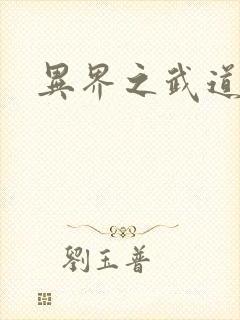 異界之武道
劉玉普